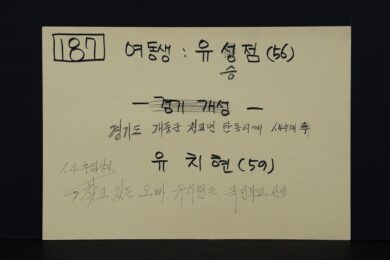 187 여동생 : 유성점 (56)
승
경기 개성
경기도 개풍군 청교면 탄동리에서 1.4후퇴 후
유치현 (59)
1.4후퇴
→ 찾고 있는 오빠 유치현은 국민학교 선생